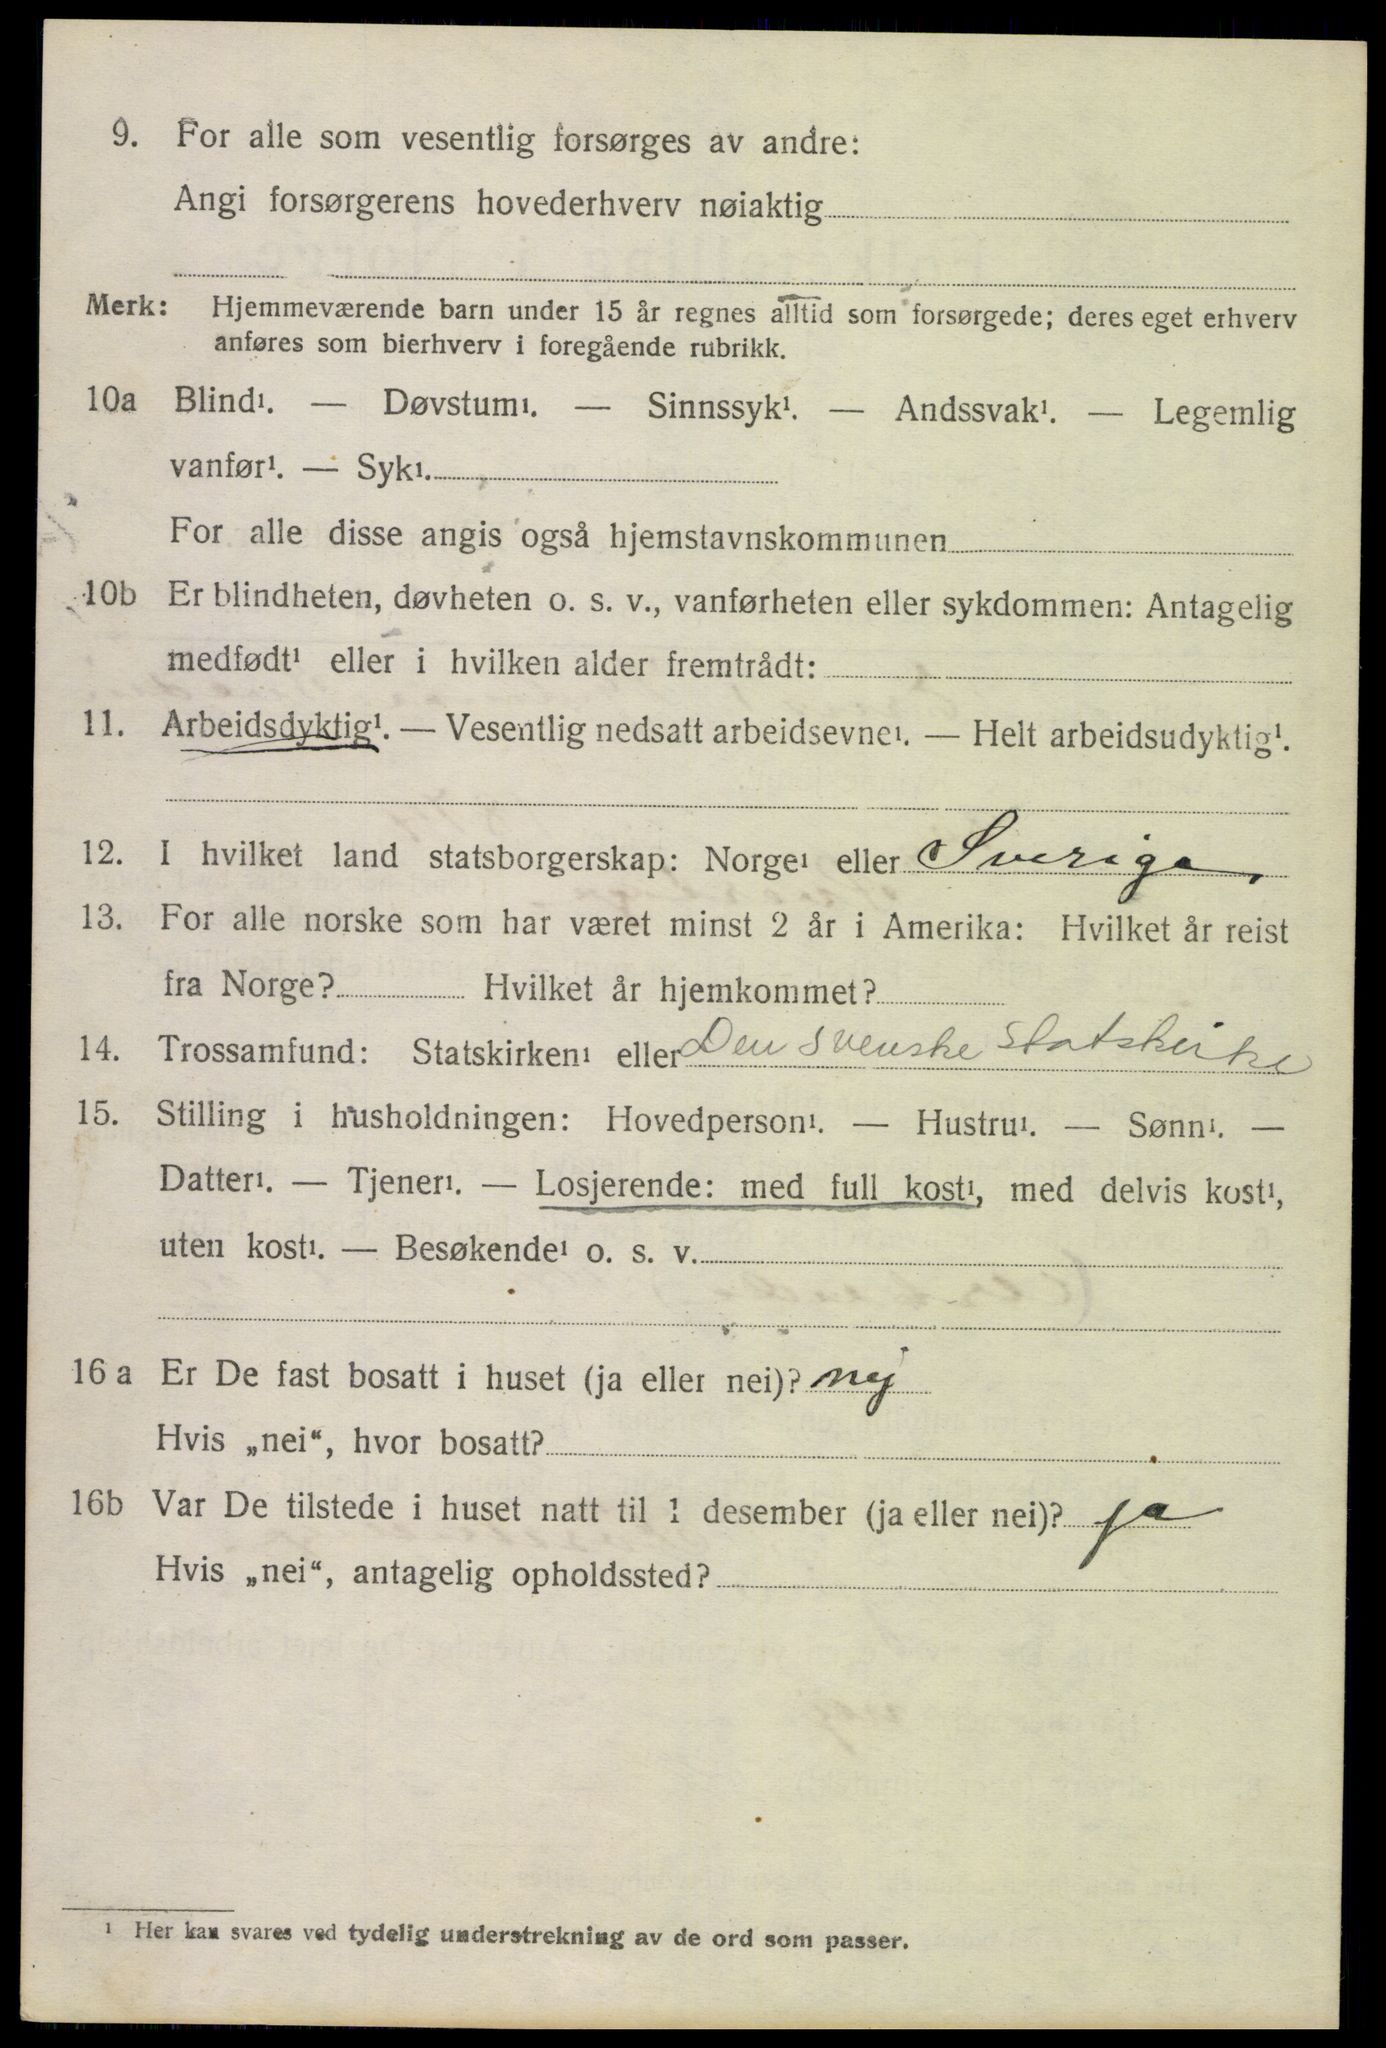 9. For alle som vesentlig forsørges av andre:
Angi forsørgerens hovederhverv nøiaktig
Merk: Hjemmeværende barn under 15 år regnes alltid som forsørgede; deres eget erhverv
anføres som bierhverv i foregående rubrikk.
10a Blind¹. — Døvstum¹. — Sinnssyk¹. — Andssvak¹. — Legemlig
vanfør¹. — Syk¹.
For alle disse angis også hjemstavnskommunen
10b Er blindheten, døvheten o. s. v., vanførheten eller sykdommen: Antagelig
medfødt¹ eller i hvilken alder fremtrådt:
11. Arbeidsdyktig¹. — Vesentlig nedsatt arbeidsevne¹. — Helt arbeidsudyktig¹.
12. I hvilket land statsborgerskap: Norge¹ eller Sveriga,
13. For alle norske som har været minst 2 år i Amerika: Hvilket år reist
fra Norge? Hvilket år hjemkommet?
14. Trossamfund: Statskirken¹ eller Den svenske statskirke
15. Stilling i husholdningen: Hovedperson¹. — Hustru¹. — Sønn¹. —
Datter¹. — Tjener¹. — Losjerende: med full kost¹, med delvis kost¹,
uten kost¹. — Besøkende¹ o. s. v.
16 a Er De fast bosatt i huset (ja eller nei)? nej
Hvis „nei“, hvor bosatt?
16b Var De tilstede i huset natt til 1 desember (ja eller nei)? ja
Hvis „nei“, antagelig opholdssted?
¹ Her kan svares ved tydelig understrekning av de ord som passer.